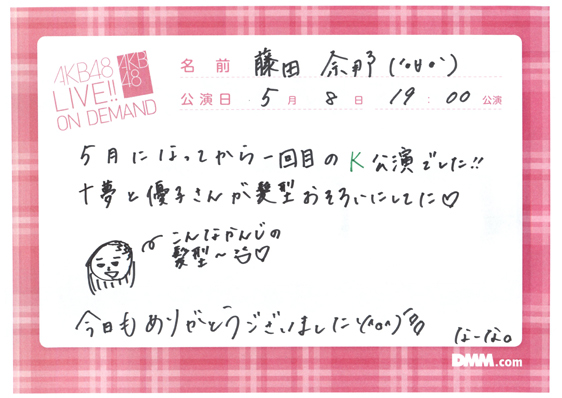 AKB48
LIVE!!
ON DEMAND
AKB
48
名前 藤田 奈那 (°∀°)
公演日 5月 8日 19:00 公演
5月になってから一回目のK公演でした!!
十夢と優子さんが髪型おそろいにしてた♡
こんなかんじの
髪型〜♡
今日もありがとうございました\(^o^)/
なーな。
DMM.com